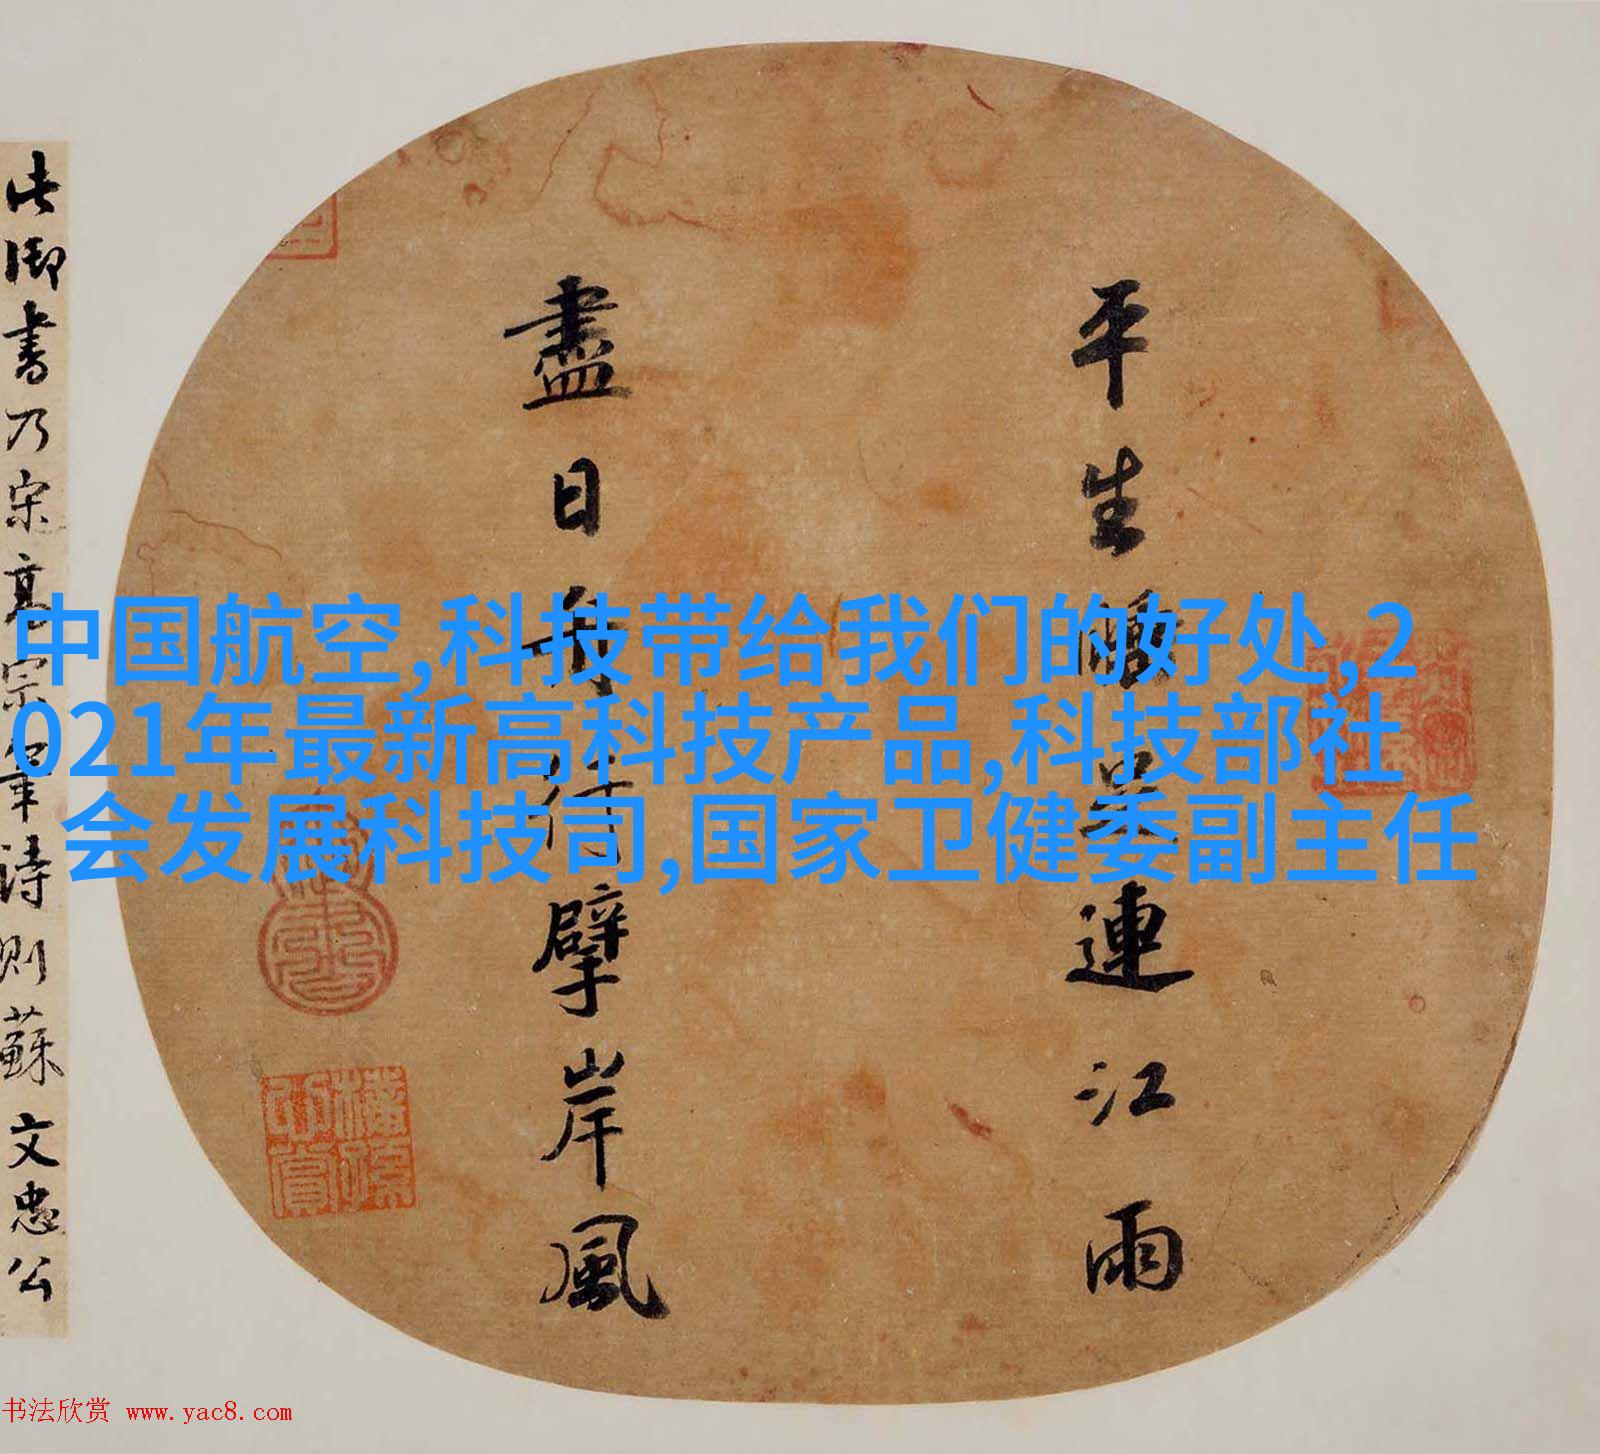 平生連江雨
盡日舟擘岸風
此御書乃宋高宗筆詩則蘇文忠公
中国航空,科技带给我们的好处,2
021年最新高科技产品,科技部社
会发展科技司,国家卫健委副主任
书法欣赏 www.yac8.com